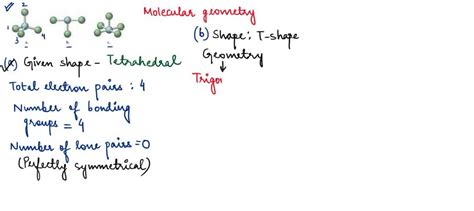 2
1
3
4
(a) Given shape - Tetrahedral
Total electron pairs : 4
Number of bonding
groups = 4
Number of lone pairs = 0
(Perfectly symmetrical)
Molecular geometry
(b) Shape: T-shape
Geometry
↓
Trigo